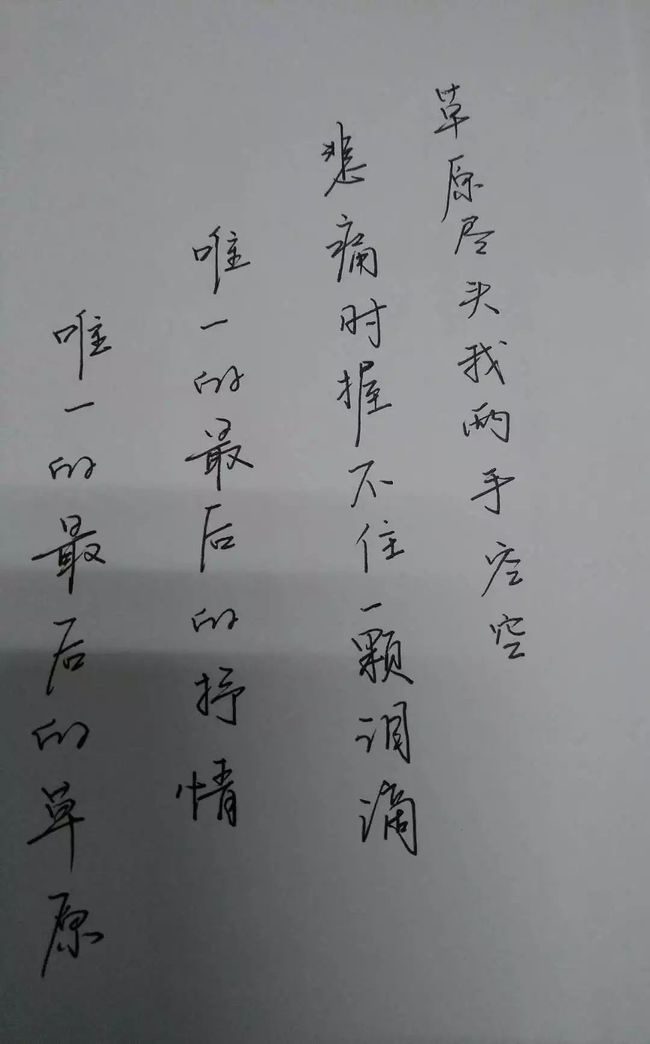 草原尽头我两手空空
悲痛时握不住一颗泪滴
唯一的最后的抒情
唯一的最后的草原